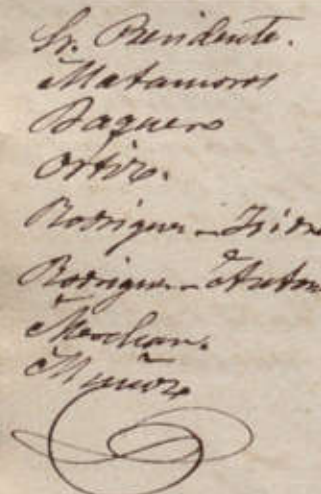 Sr. Presidente.
Matamoros
Baquero
Ortiz.
Rodriguez - Isidro
Rodriguez - Anton
Merchan.
Muñoz